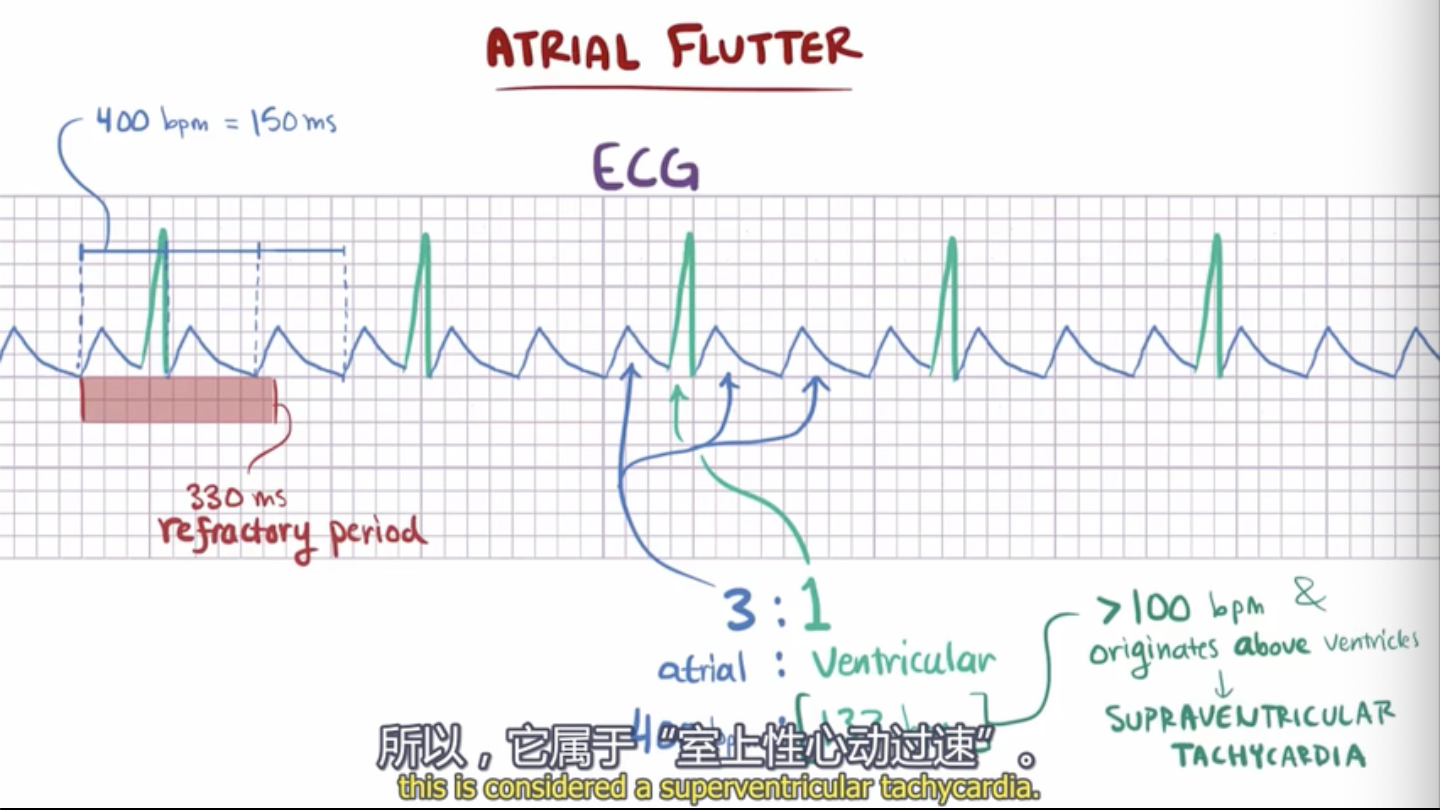 ATRIAL FLUTTER
400 bpm = 150 ms
ECG
330 ms
refractory period
3 : 1
atrial : Ventricular
>100 bpm &
originates above ventricles
↓
SUPRAVENTRICULAR
TACHYCARDIA
所以，它属于“室上性心动过速”。
this is considered a superventricular tachycardia.